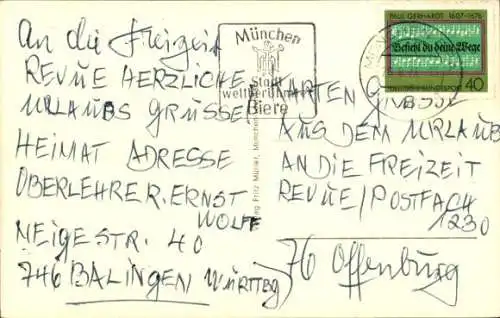 An die Freizeit
REVUE HERZLICHE
URLAUBS GRÜSSE
HEIMAT ADRESSE
OBERLEHRER. ERNST
WOLFF
NEIGESTR. 40
746 BALINGEN WÜRTTBG
München
Stadt
weltberühmter
Biere
PAUL GERHARDT 1607-1676
Befiehl du deine Wege
DEUTSCHE BUNDESPOST 40
KARTEN GRUSS
AUS DEM URLAUB
AN DIE FREIZEIT
REVUE/POSTFACH
1230
76 Offenburg
Fritz Müller, München